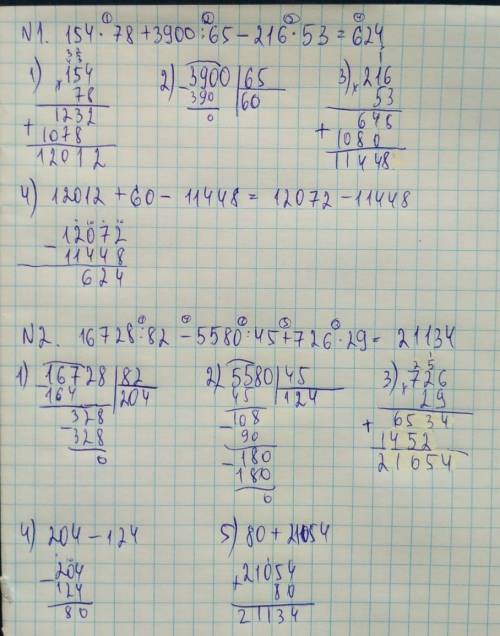 N1. 154 · 78 + 3900 : 65 − 216 · 53 = 624
1) 154 2) 3900 | 65 3) 216
× 78 − 390 | 60 × 53
1232 0 648
+ 1078 + 1080
12012 11448
4) 12012 + 60 − 11448 = 12072 − 11448
− 12072
11448
624
N2. 16728 : 82 − 5580 : 45 + 726 · 29 = 21134
1) − 16728 | 82 2) − 5580 | 45 3) × 726
164 | 204 45 | 124 29
− 328 − 108 + 6534
328 90 1452
0 − 180 21054
180
0
4) 204 − 124 5) 80 + 21054
− 204 + 21054
124 80
80 21134